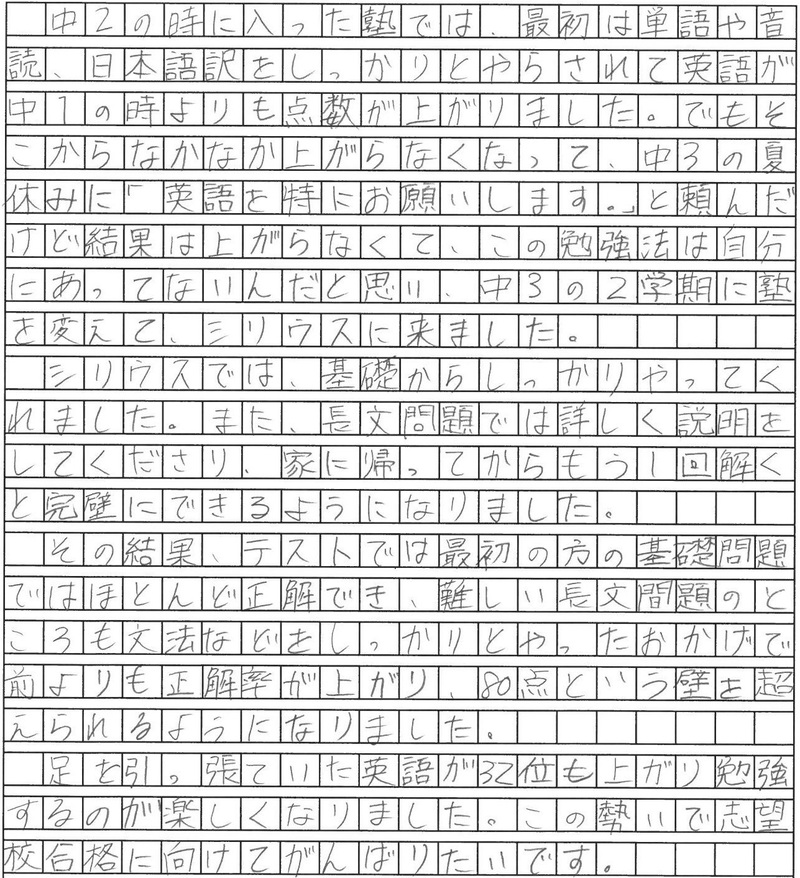 中2の時に入った塾では、最初は単語や音
読、日本語訳をしっかりとやらされて英語が
中1の時よりも点数が上がりました。でもそ
こからなかなか上がらなくなって、中3の夏
休みに「英語を特にお願いします。」と頼んだ
けど結果は上がらなくて、この勉強法は自分
にあってないんだと思い、中3の2学期に塾
を変えて、シリウスに来ました。
シリウスでは、基礎からしっかりやってく
れました。また、長文問題では詳しく説明を
してくださり、家に帰ってからもう1回解く
と完璧にできるようになりました。
その結果、テストでは最初の方の基礎問題
ではほとんど正解でき、難しい長文問題のと
ころも文法などをしっかりとやったおかげで
前よりも正解率が上がり、80点という壁を超
えられるようになりました。
足を引っ張ていた英語が32位も上がり勉強
するのが楽しくなりました。この勢いで志望
校合格に向けてがんばりたいです。